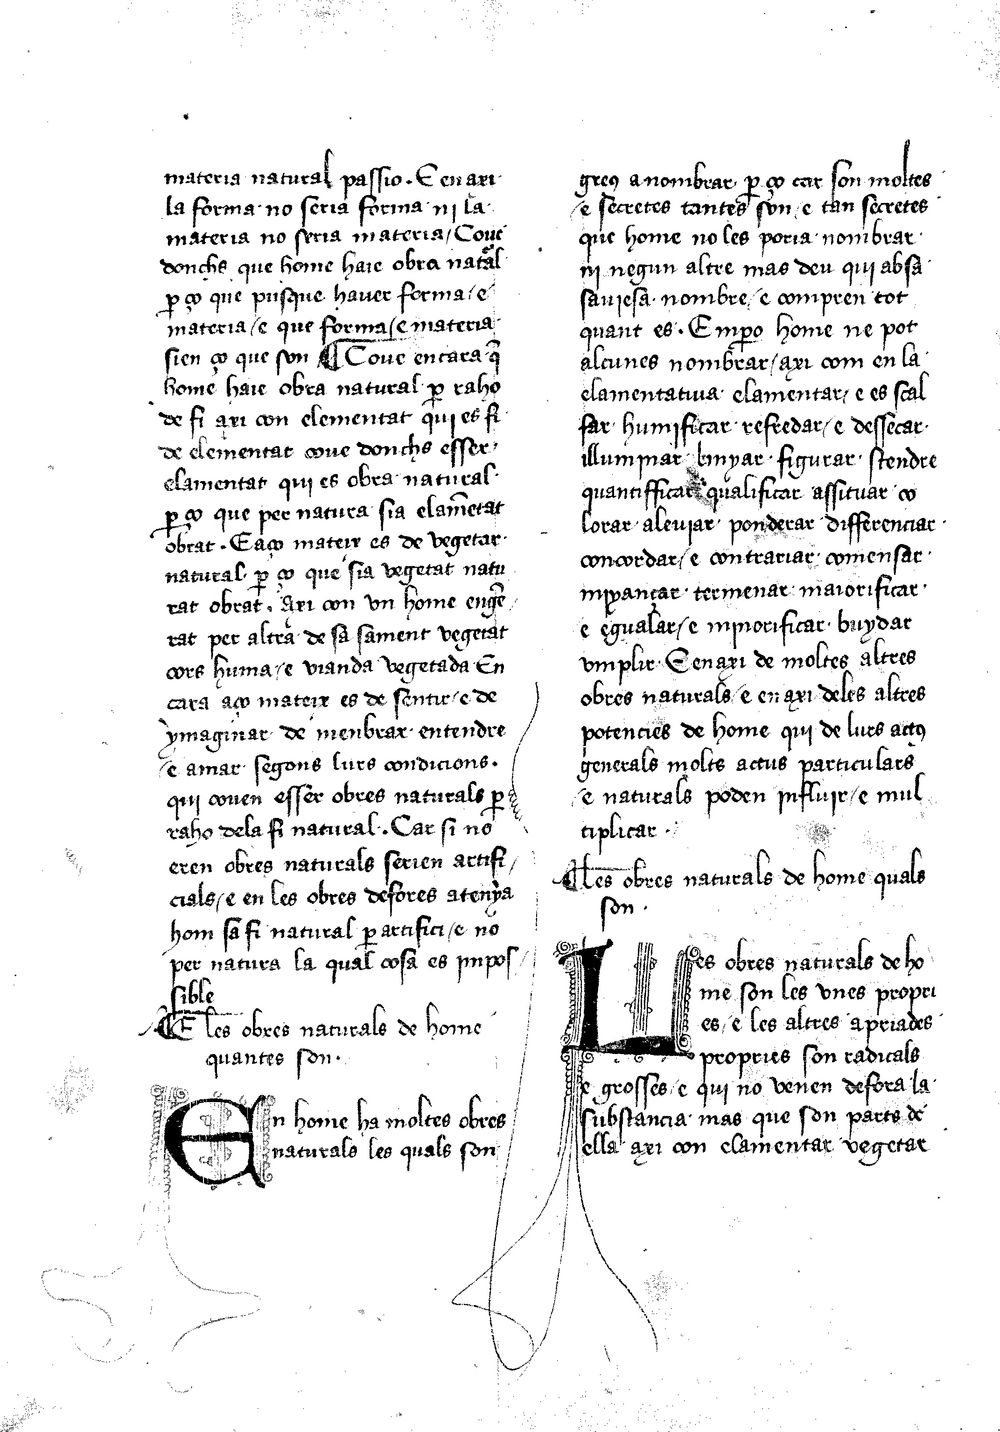 materia natural passio. E en axi
la forma no seria forma ni la
materia no seria materia / Coue
donchs que home haie obra natãl
p̱ ço que pusque hauer forma / e
materia / e que forma / e materia
sien ço que son ¶ Coue encara q̃
home haie obra natural p̱ raho
de fi axi con elementat qui es fi
de elementar coue donchs esser
elamentat qui es obra natural
p̱ ço que per natura sia elamẽtat
obrat. E aço mateix es de vegetar
natural p̱ ço que sia vegetat natu
rat obrat. Axi con vn home engẽ
rat per altra de sa sament vegetat
cors huma / e vianda vegetada En
cara aço mateix es de sentir / e de
ymaginar de menbrar entendre
/ e amar segons lurs condicions.
qui couen esser obres naturals p̱
raho dela fi natural. Car si no
eren obres naturals serien artifi
cials / e en les obres defores atenyà
hom sa fi natural p̱ artifici / e no
per natura la qual cosa es inpos
sible
¶ E les obres naturals de home
quantes son.
En home ha moltes obres
naturals les quals son
greus a nombrar p̱ ço car son moltes
/ e secretes tantes son / e tan secretes
que home no les poria nombrar
ni negun altre mas deu qui ab sa
sauiesa nombre / e compren tot
quant es. Emp̱o home ne pot
alcunes nombrar / axi com en la
elamentatiua elamentar / e es scal
far humificar refredar / e dessecar
illuminar linyar figurar stendre
quantifficar qualificar assituar co
lorar aleuiar ponderar differenciar
concordar / e contrariar comensar
miyançar termenar maiorificar
e egualar / e minorificar buydar
vmplir E en axi de moltes altres
obres naturals / e en axi deles altres
potencies de home qui de lurs actus
generals molts actus particulars
/ e naturals poden influir / e mul
tiplicar.
¶ Les obres naturals de home quals
son.
Les obres naturals de ho
me son les vnes propri
es / e les altres apriades
propries son radicals
e grosses / e qui no venen defora la
substancia mas que son parts de
ella axi con elamentar vegetar